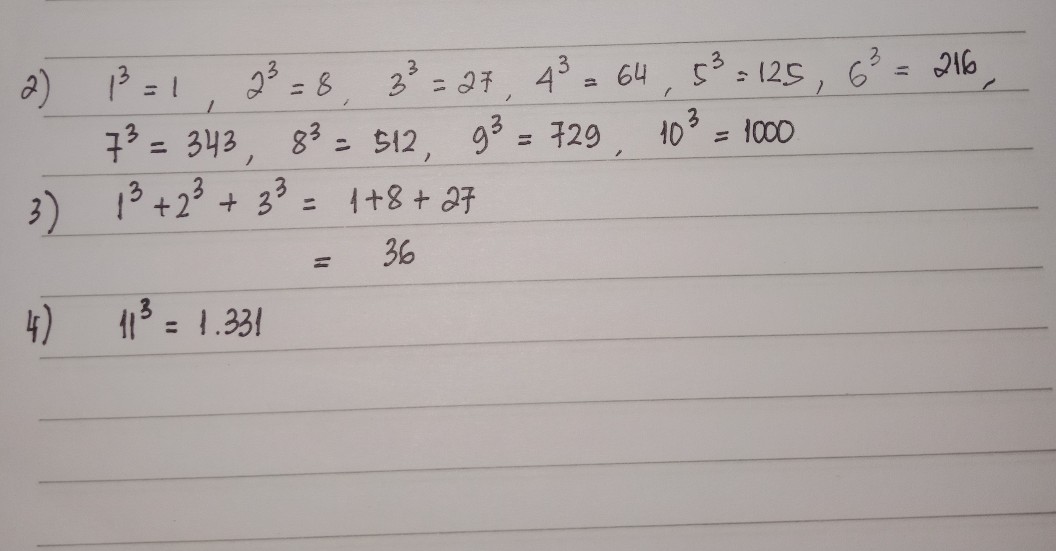 2) 1³ = 1 , 2³ = 8 , 3³ = 27 , 4³ = 64 , 5³ = 125 , 6³ = 216 ,
7³ = 343 , 8³ = 512 , 9³ = 729 , 10³ = 1000
3) 1³ + 2³ + 3³ = 1 + 8 + 27
= 36
4) 11³ = 1.331